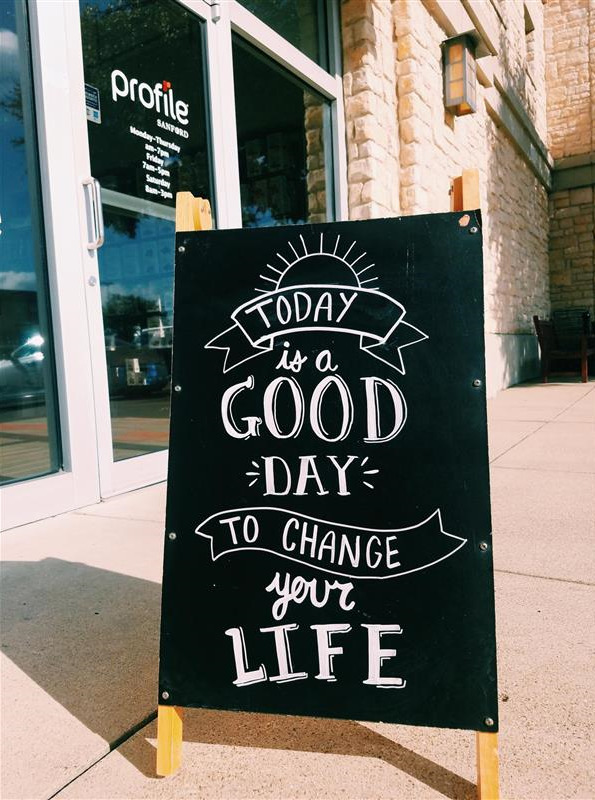 profile
SANFORD
Monday-Thursday
am-7pm
Friday
7am-5pm
Saturday
8am-3pm
TODAY
is a
GOOD
DAY
TO CHANGE
your
LIFE